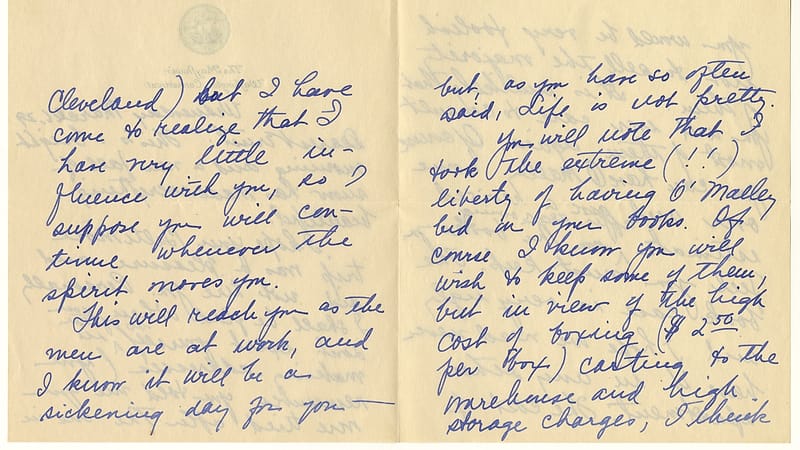 Cleveland) but I have
come to realize that I
have very little in-
fluence with you, so I
suppose you will con-
tinue whenever the
spirit moves you.
This will reach you as the
men are at work, and
I know it will be a
sickening day for you —
but, as you have so often
said, Life is not pretty.
You will note that I
took the extreme (!!)
liberty of having O'Malley
bid in your books. Of
course I know you will
wish to keep some of them,
but in view of the high
cost of boxing ($2.50
per box) carting to the
warehouse and high
storage charges, I think